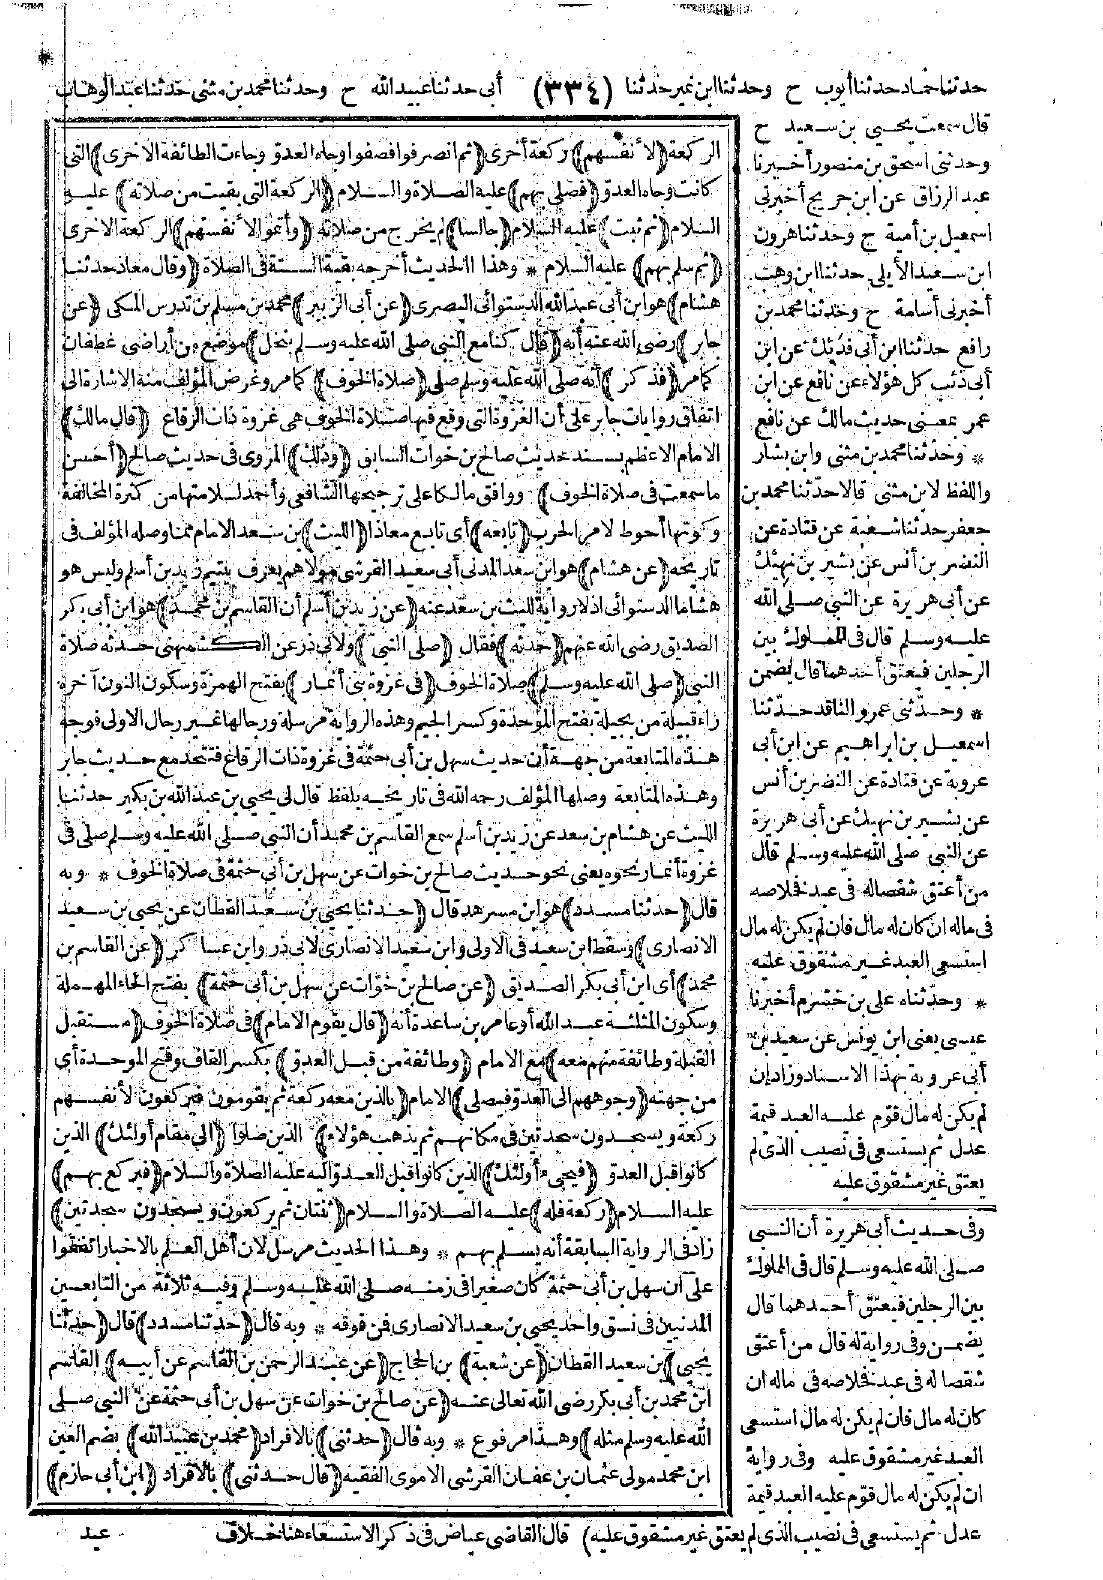 حدثنا حماد حدثنا أيوب ح وحدثنا ابن نمير حدثنا (٣٣٤) أبى حدثنا عبيد الله ح وحدثنا محمد بن مثنى حدثنا عبد الوهاب
قال سمعت يحيى بن سعيد ح
وحدثنى اسحق بن منصور أخبرنا
عبد الرزاق عن ابن جريج أخبرنى
اسمعيل بن أمية ح وحدثنا هرون
ابن سعيد الأيلى حدثنا ابن وهب
أخبرنى أسامة ح وحدثنا محمد بن
رافع حدثنا ابن أبى فديك عن ابن
أبى ذئب كل هؤلاء عن نافع عن ابن
عمر بمعنى حديث مالك عن نافع
* وحدثنا محمد بن مثنى وابن بشار
واللفظ لابن مثنى قالا حدثنا محمد بن
جعفر حدثنا شعبة عن قتادة عن
النضر بن أنس عن بشير بن نهيك
عن أبى هريرة عن النبى صلى الله
عليه وسلم قال فى المملوك بين
الرجلين فيعتق أحدهما قال يضمن
* وحدثنى عمرو الناقد حدثنا
اسمعيل بن ابراهيم عن ابن أبى
عروبة عن قتادة عن النضر بن أنس
عن بشير بن نهيك عن أبى هريرة
عن النبى صلى الله عليه وسلم قال
من أعتق شقصا له فى عبد فخلاصه
فى ماله ان كان له مال فان لم يكن له مال
استسعى العبد غير مشقوق عليه
* وحدثناه على بن خشرم أخبرنا
عيسى يعنى ابن يونس عن سعيد بن
أبى عروبة بهذا الاسناد وزاد ان
لم يكن له مال قوم عليه العبد قيمة
عدل ثم يستسعى فى نصيب الذى لم
يعتق غير مشقوق عليه
وفى حديث أبى هريرة أن النبى
صلى الله عليه وسلم قال فى المملوك
بين الرجلين فيعتق أحدهما قال
يضمن وفى رواية له قال من أعتق
شقصا له فى عبد فخلاصه فى ماله ان
كان له مال فان لم يكن له مال استسعى
العبد غير مشقوق عليه وفى رواية
ان لم يكن له مال قوم عليه العبد قيمة
عدل ثم يستسعى فى نصيب الذى لم يعتق غير مشقوق عليه) قال القاضى عياض فى ذكر الاستسعاء هنا خلاف
الركعة (لأنفسهم) ركعة أخرى (ثم انصرفوا فصفوا وجاه العدو وجاءت الطائفة الاخرى) التى
كانت وجاه العدو (فصلى بهم) عليه الصلاة والسلام (الركعة التى بقيت من صلاته) عليه
السلام (ثم ثبت) عليه السلام (جالسا) لم يخرج من صلاته (وأتموا لأنفسهم) الركعة الاخرى
(ثم سلم بهم) عليه السلام * وهذا الحديث أخرجه بقية الستة فى الصلاة (وقال معاذ حدثنا
هشام) هو ابن أبى عبد الله الدستوائى البصرى (عن أبى الزبير) محمد بن مسلم بن تدرس المكى (عن
جابر) رضى الله عنه أنه (قال كنا مع النبى صلى الله عليه وسلم بنخل) موضع من أراضى غطفان
كما مر (فذكر) أنه صلى الله عليه وسلم صلى (صلاة الخوف) كما مر وغرض المؤلف منه الاشارة الى
اتفاق روايات جابر على أن الغزوة التى وقع فيها صلاة الخوف هى غزوة ذات الرقاع (قال مالك)
الامام الاعظم بسند حديث صالح بن خوات السابق (وذلك) المروى فى حديث صالح (أحسن
ما سمعت فى صلاة الخوف) ووافق مالكا على ترجيحها الشافعى وأحمد لسلامتها من كثرة المخالفة
وكونها أحوط لامر الحرب (تابعه) أى تابع معاذا (الليث) بن سعد الامام مما وصله المؤلف فى
تاريخه (عن هشام) هو ابن سعد المدنى أبى سعيد القرشى مولاهم يعرف بيتيم زيد بن أسلم وليس هو
هشاما الدستوائى اذ لا رواية لليث بن سعد عنه (عن زيد بن أسلم أن القاسم بن محمد) هو ابن أبى بكر
الصديق رضى الله عنهم (حدثه) فقال (صلى النبى) ولابى ذر عن الكشميهنى حدثه صلاة
النبى (صلى الله عليه وسلم) صلاة الخوف (فى غزوة بنى أنمار) بفتح الهمزة وسكون النون آخره
راء قبيلة من بجيلة بفتح الموحدة وكسر الجيم وهذه الرواية مرسلة ورجالها غير رجال الاولى فوجه
هذه المتابعة من جهة أن حديث سهل بن أبى حثمة فى غزوة ذات الرقاع فتتحد مع حديث جابر
وهذه المتابعة وصلها المؤلف رحمه الله فى تاريخه بلفظ قال لى يحيى بن عبد الله بن بكير حدثنا
الليث عن هشام بن سعد عن زيد بن أسلم سمع القاسم بن محمد أن النبى صلى الله عليه وسلم صلى فى
غزوة أنمار نحوه يعنى نحو حديث صالح بن خوات عن سهل بن أبى حثمة فى صلاة الخوف * وبه
قال (حدثنا مسدد) هو ابن مسرهد قال (حدثنا يحيى بن سعيد القطان عن يحيى بن سعيد
الانصارى) وسقط ابن سعيد فى الاولى وابن سعيد الانصارى لابى ذر وابن عساكر (عن القاسم بن
محمد) أى ابن أبى بكر الصديق (عن صالح بن خوات عن سهل بن أبى حثمة) بفتح الحاء المهملة
وسكون المثلثة عبد الله أو عامر بن ساعدة أنه (قال يقوم الامام) فى صلاة الخوف (مستقبل
القبلة وطائفة منهم معه) مع الامام (وطائفة من قبل العدو) بكسر القاف وفتح الموحدة أى
من جهته (وجوههم الى العدو فيصلى) الامام (بالذين معه ركعة ثم يقومون فيركعون لأنفسهم
ركعة ويسجدون سجدتين فى مكانهم ثم يذهب هؤلاء) الذين صلوا (الى مقام أولئك) الذين
كانوا قبل العدو (فيجىء أولئك) الذين كانوا قبل العدو اليه عليه الصلاة والسلام (فيركع بهم)
عليه السلام (ركعة فله) عليه الصلاة والسلام (ثنتان ثم يركعون ويسجدون سجدتين)
زاد فى الرواية السابقة أنه يسلم بهم * وهذا الحديث مرسل لان أهل العلم بالاخبار اتفقوا
على أن سهل بن أبى حثمة كان صغيرا فى زمنه صلى الله عليه وسلم وفيه ثلاثة من التابعين
المدنيين فى نسق واحد يحيى بن سعيد الانصارى فمن فوقه * وبه قال (حدثنا مسدد) قال (حدثنا
يحيى) بن سعيد القطان (عن شعبة) بن الحجاج (عن عبد الرحمن بن القاسم عن أبيه) القاسم
ابن محمد بن أبى بكر رضى الله تعالى عنه (عن صالح بن خوات عن سهل بن أبى حثمة عن النبى صلى
الله عليه وسلم مثله) وهذا مرفوع * وبه قال (حدثنى) بالافراد (محمد بن عبيد الله) بضم العين
ابن محمد مولى عثمان بن عفان القرشى الاموى الفقيه (قال حدثنى) بالافراد (ابن أبى حازم)
عبد